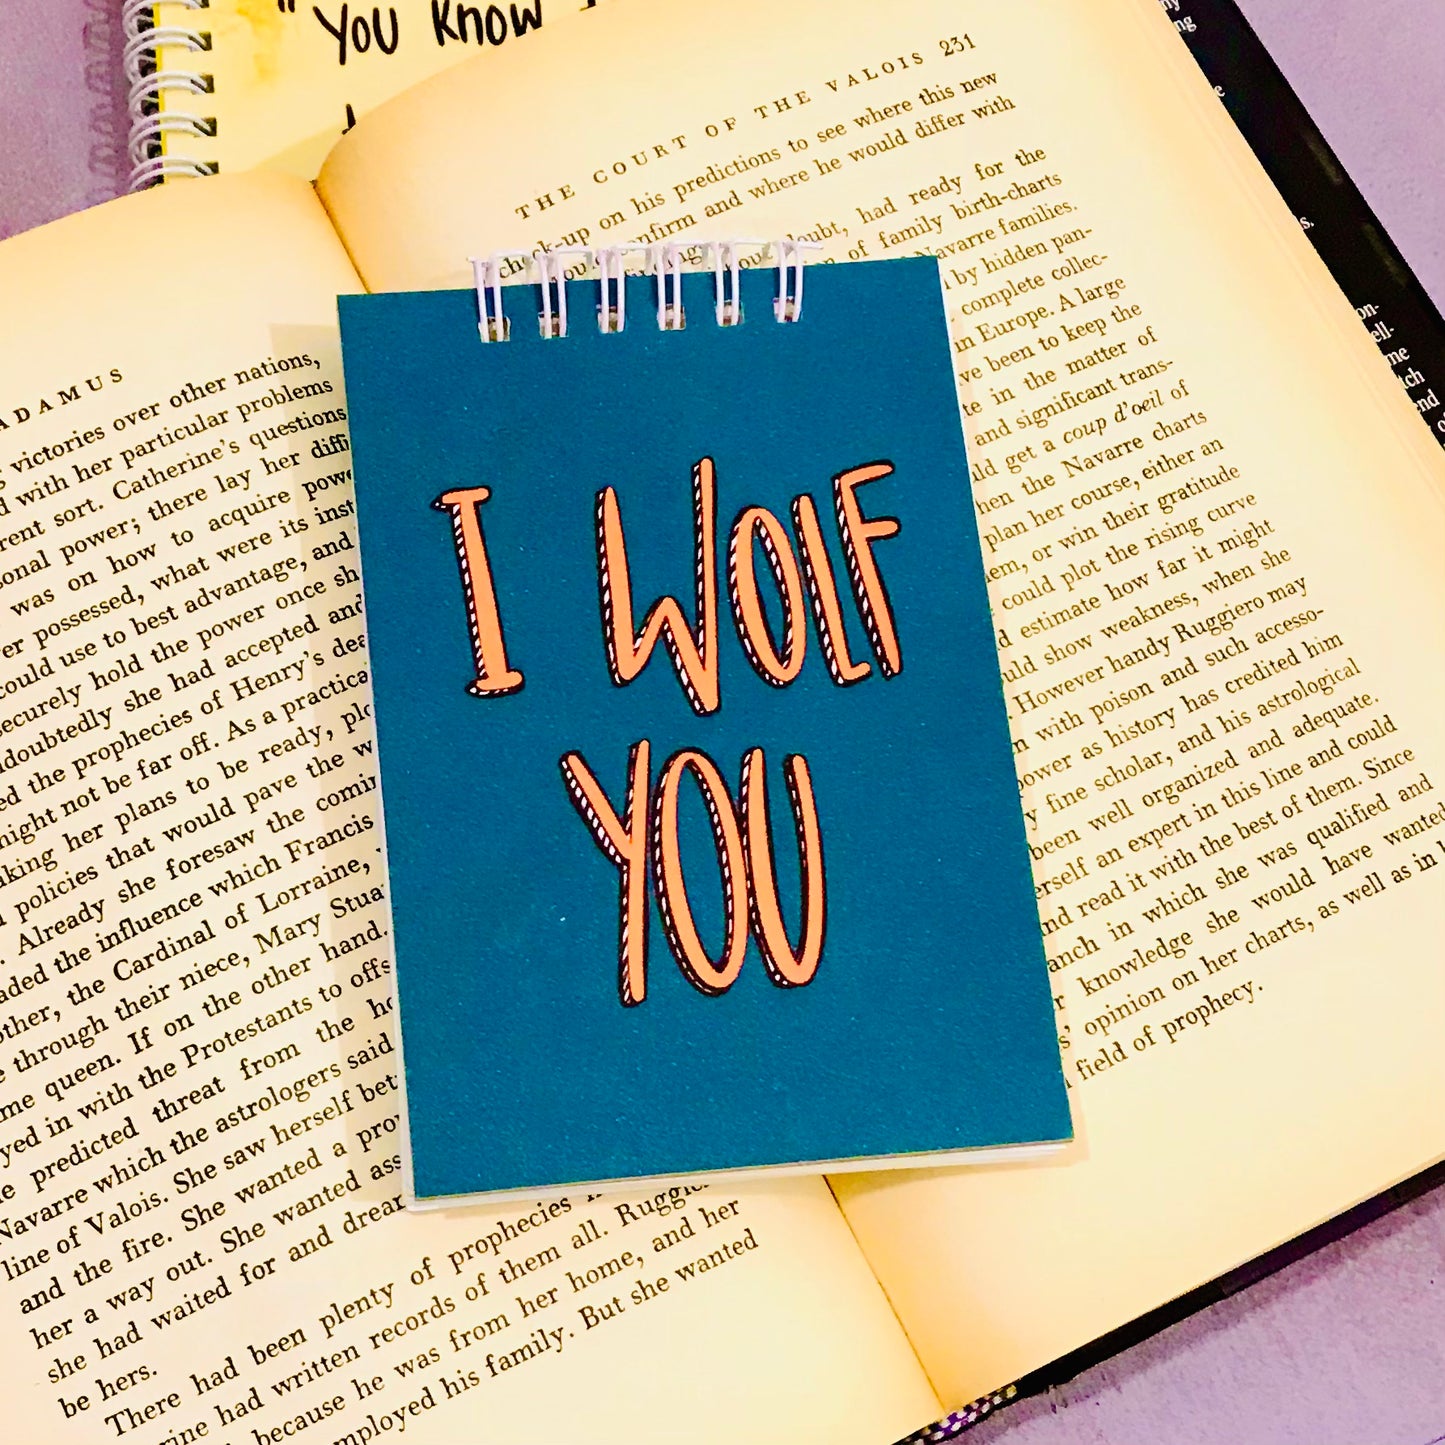 "You Know
I WOLF
YOU
ADAMUS
victories over other nations,
with her particular problems
rent sort. Catherine's questions
sonal power; there lay her
was on how to acquire
er possessed, what were its
could use to best advantage, and
securely hold the power once
doubtedly she had accepted and
ed the prophecies of Henry's
might not be far off. As a
aking her plans to be ready,
policies that would pave the
. Already she foresaw the
aded the influence which Francis
other, the Cardinal of Lorraine,
through their niece, Mary
me queen. If on the other hand.
yed in with the Protestants to
predicted threat from the
Navarre which the astrologers said
line of Valois. She saw herself
and the fire. She wanted a
her a way out. She wanted
she had waited for and
be hers.
There had been plenty of prophecies
rine had written records of them all.
because he was from her home, and her
mployed his family. But she wanted
THE COURT OF THE VALOIS 231
check-up on his predictions to see where this new
confirm and where he would differ with
doubt, had ready for the
of family birth-charts
Navarre families.
by hidden pan-
complete collec-
in Europe. A large
ve been to keep the
te in the matter of
and significant trans-
ld get a coup d'oeil of
hen the Navarre charts
plan her course, either an
em, or win their gratitude
could plot the rising curve
d estimate how far it might
uld show weakness, when she
. However handy Ruggiero may
n with poison and such accesso-
power as history has credited him
y fine scholar, and his astrological
been well organized and adequate.
erself an expert in this line and could
nd read it with the best of them. Since
anch in which she was qualified and
r knowledge she would have wanted
s' opinion on her charts, as well as in
field of prophecy.